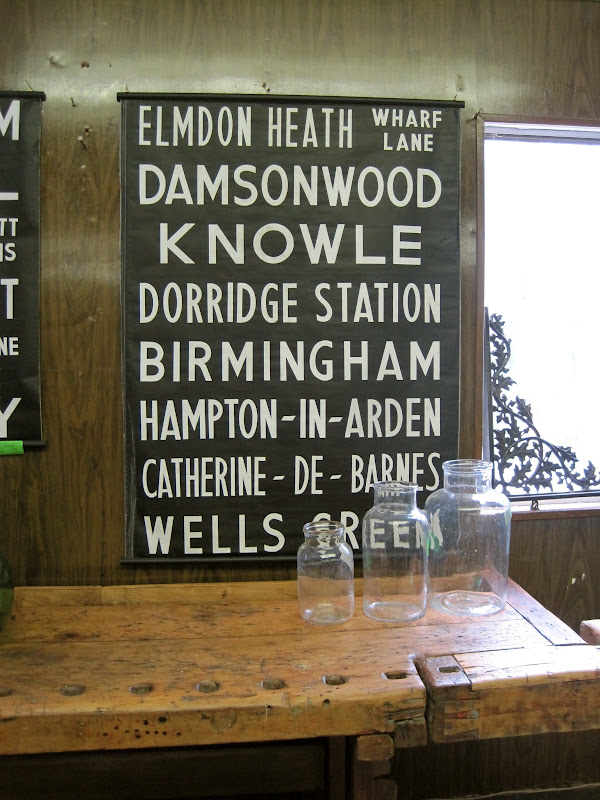 ELMDON HEATH WHARF LANE
DAMSONWOOD
KNOWLE
DORRIDGE STATION
BIRMINGHAM
HAMPTON-IN-ARDEN
CATHERINE-DE-BARNES
WELLS GREEN